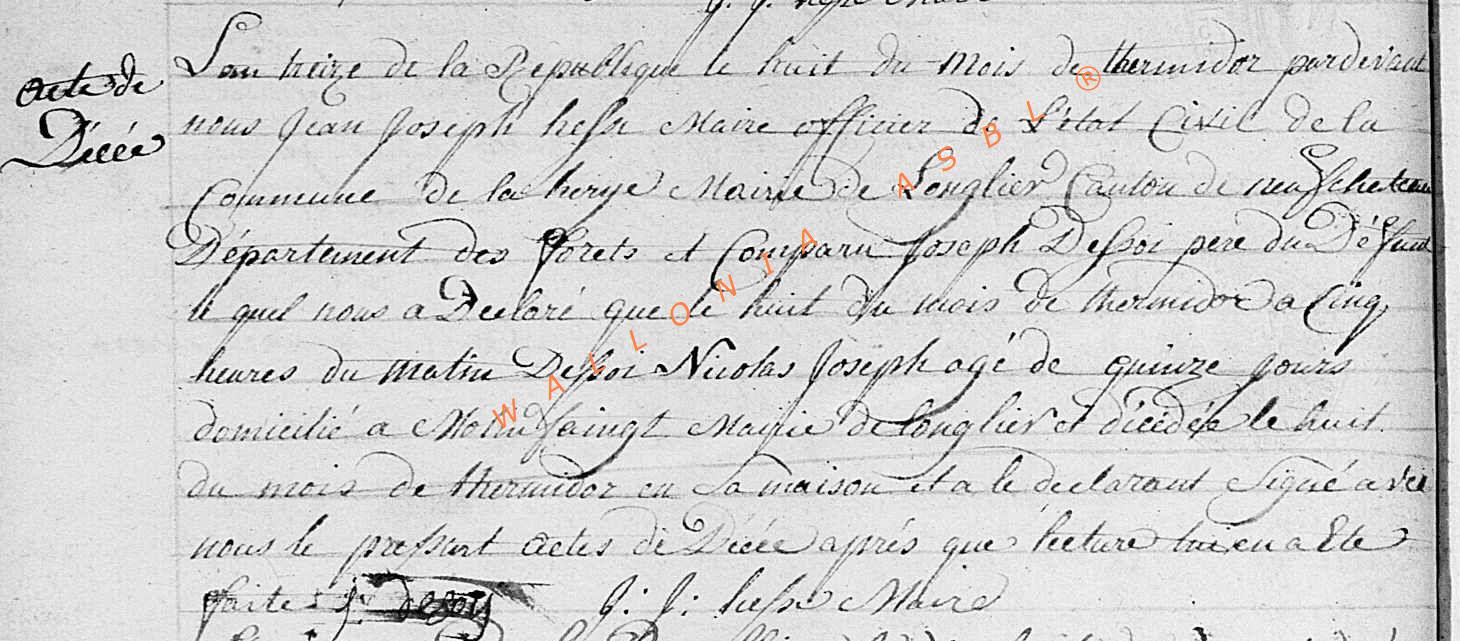 acte de
Décée
L'an treize de la Republique le huit du Mois de thermidor pardevant
nous Jean Joseph hesse Maire officier de l'état Civil de la
Commune de la herye Mairie de Longlier Canton de neufchateau
Département des forets et Comparu Joseph Dessoi pere du Défunt
le quel nous a Declaré que le huit du mois de thermidor a Cinq
heures du matin Dessoi Nicolas Joseph agé de quinze jours
domicilié a Mollinfaingt Mairie de longlier et décédé le huit
du mois de thermidor en Sa maison et a le declarant Signé avec
nous le pressent actes de Décée aprés que lecture lui en a Eté
faite J: desoij J: J: hesse Maire
WALLONIA ASBL ®